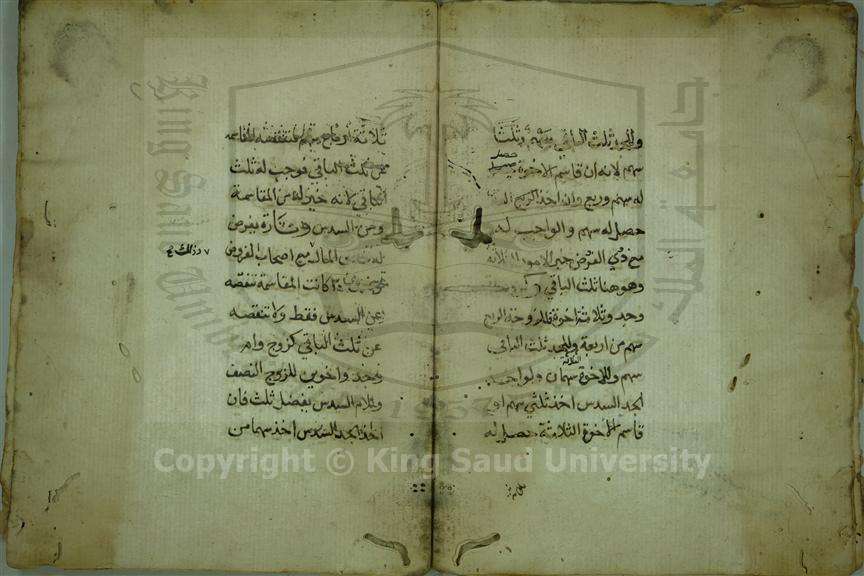 وللجد ثلث الباقي سهم وثلثا
سهم لانه ان قاسم الاخوة حصل
له سهم وربع وان اخذ
حصل له سهم والواجب له
مع ذوي الفروض خير الامور الثلاثة
وهو هنا ثلث الباقي
وجد وثلاثة اخوة فللزوجة الربع
سهم من اربعة وللجد ثلث الباقي
سهم وللاخوة الثلاثة سهمان ولو اخذ
الجد السدس اخذ ثلثي سهم او
قاسم الاخوة الثلاثة حصل له
ثلاثة ارباع سهم فتنقصه المقاسمة
عن ثلث الباقي فوجب له ثلث
الباقي لانه خير له من المقاسمة
ومن السدس وتارة يفرض
له المال مع اصحاب الفروض
وذلك
اذا كانت المقاسمة تنقصه
عن السدس فقط ولا تنقصه
عن ثلث الباقي كزوج وام
وجد واخوين للزوج النصف
وللام السدس يفضل ثلث فان
اخذ الجد السدس اخذ سهما من
King Saud University
جامعة الملك
1957
Copyright © King Saud University